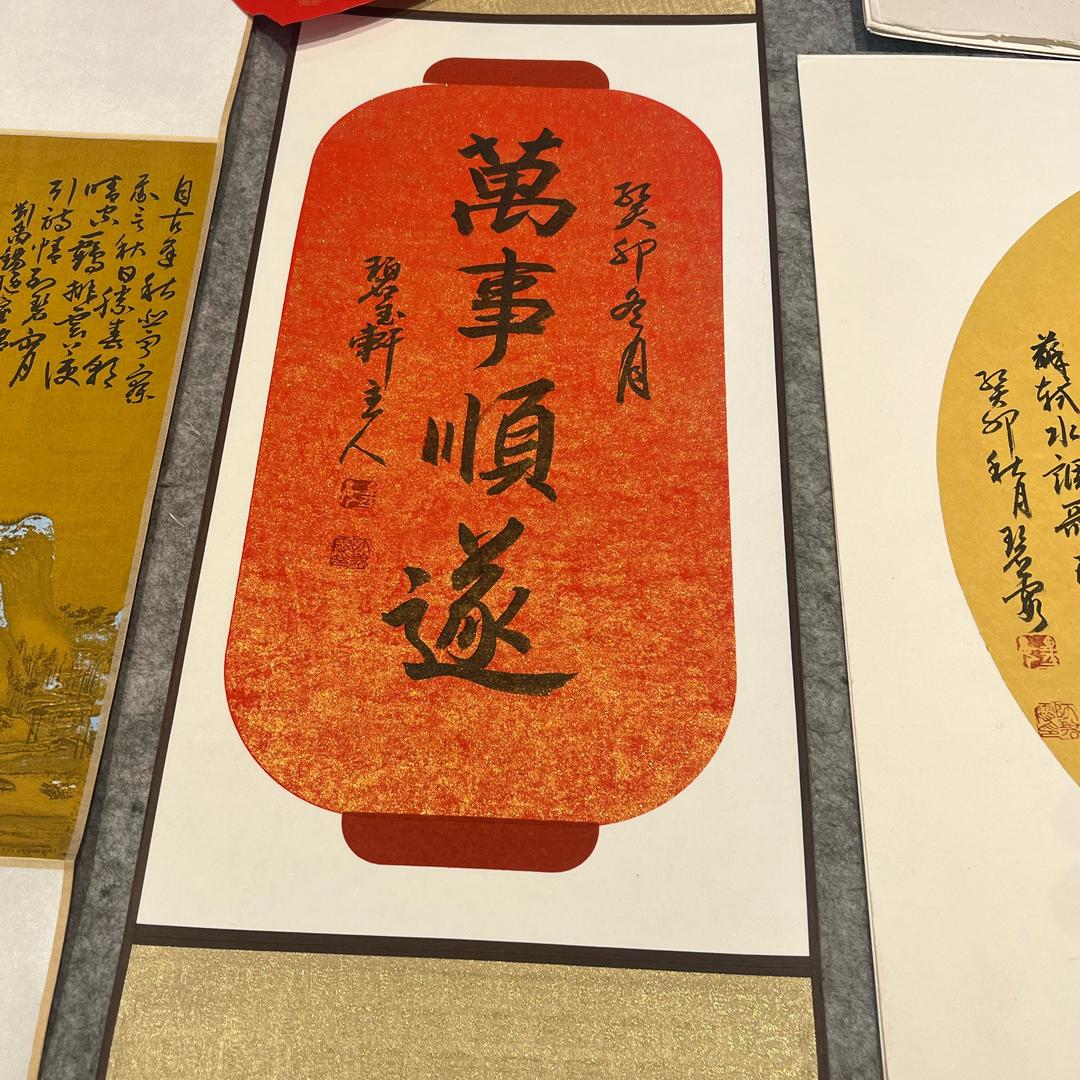 自古逢秋悲寂寥
我言秋日勝春朝
晴空一鶴排雲上便
引詩情到碧霄
劉禹錫
癸卯冬月
萬事順遂
碧軒主人
蘇軾水調歌
癸卯秋月碧